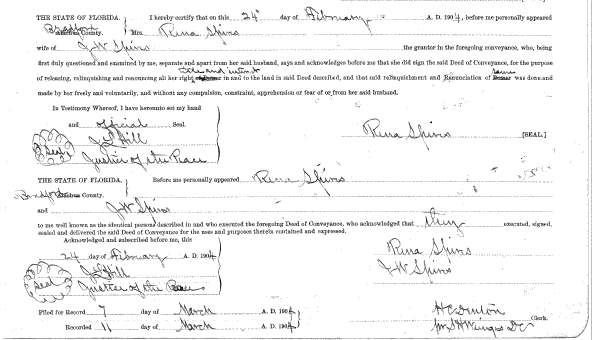 THE STATE OF FLORIDA, I hereby certify that on this 24" day of February A. D. 1904, before me personally appeared
Bradford County. Mrs Rena Spires
wife of J W Spires the grantor in the foregoing conveyance, who, being
first duly questioned and examined by me, separate and apart from her said husband, says and acknowledges before me that she did sign the said Deed of Conveyance, for the purpose
of releasing, relinquishing and renouncing all her right title and interest in and to the land in said Deed described, and that said relinquishment and Renunciation of same was done and
made by her freely and voluntarily, and without any compulsion, constraint, apprehension or fear of or from her said husband.
In Testimony Whereof, I have hereunto set my hand
and official Seal
Seal J L Hill Rena Spires [SEAL.]
Justice of the Peace
THE STATE OF FLORIDA, Before me personally appeared Rena Spires
Bradford County.
and J W Spires
to me well known as the identical persons described in and who executed the foregoing Deed of Conveyance, who acknowledged that they executed, signed,
sealed and delivered the said Deed of Conveyance for the uses and purposes therein contained and expressed.
Acknowledged and subscribed before me, this
24 day of February A. D. 1904 Rena Spires
Seal J L Hill J W Spires
Justice of the Peace
Filed for Record 7 day of March A. D. 1904
Recorded 11 day of March A. D. 1904 Clerk.